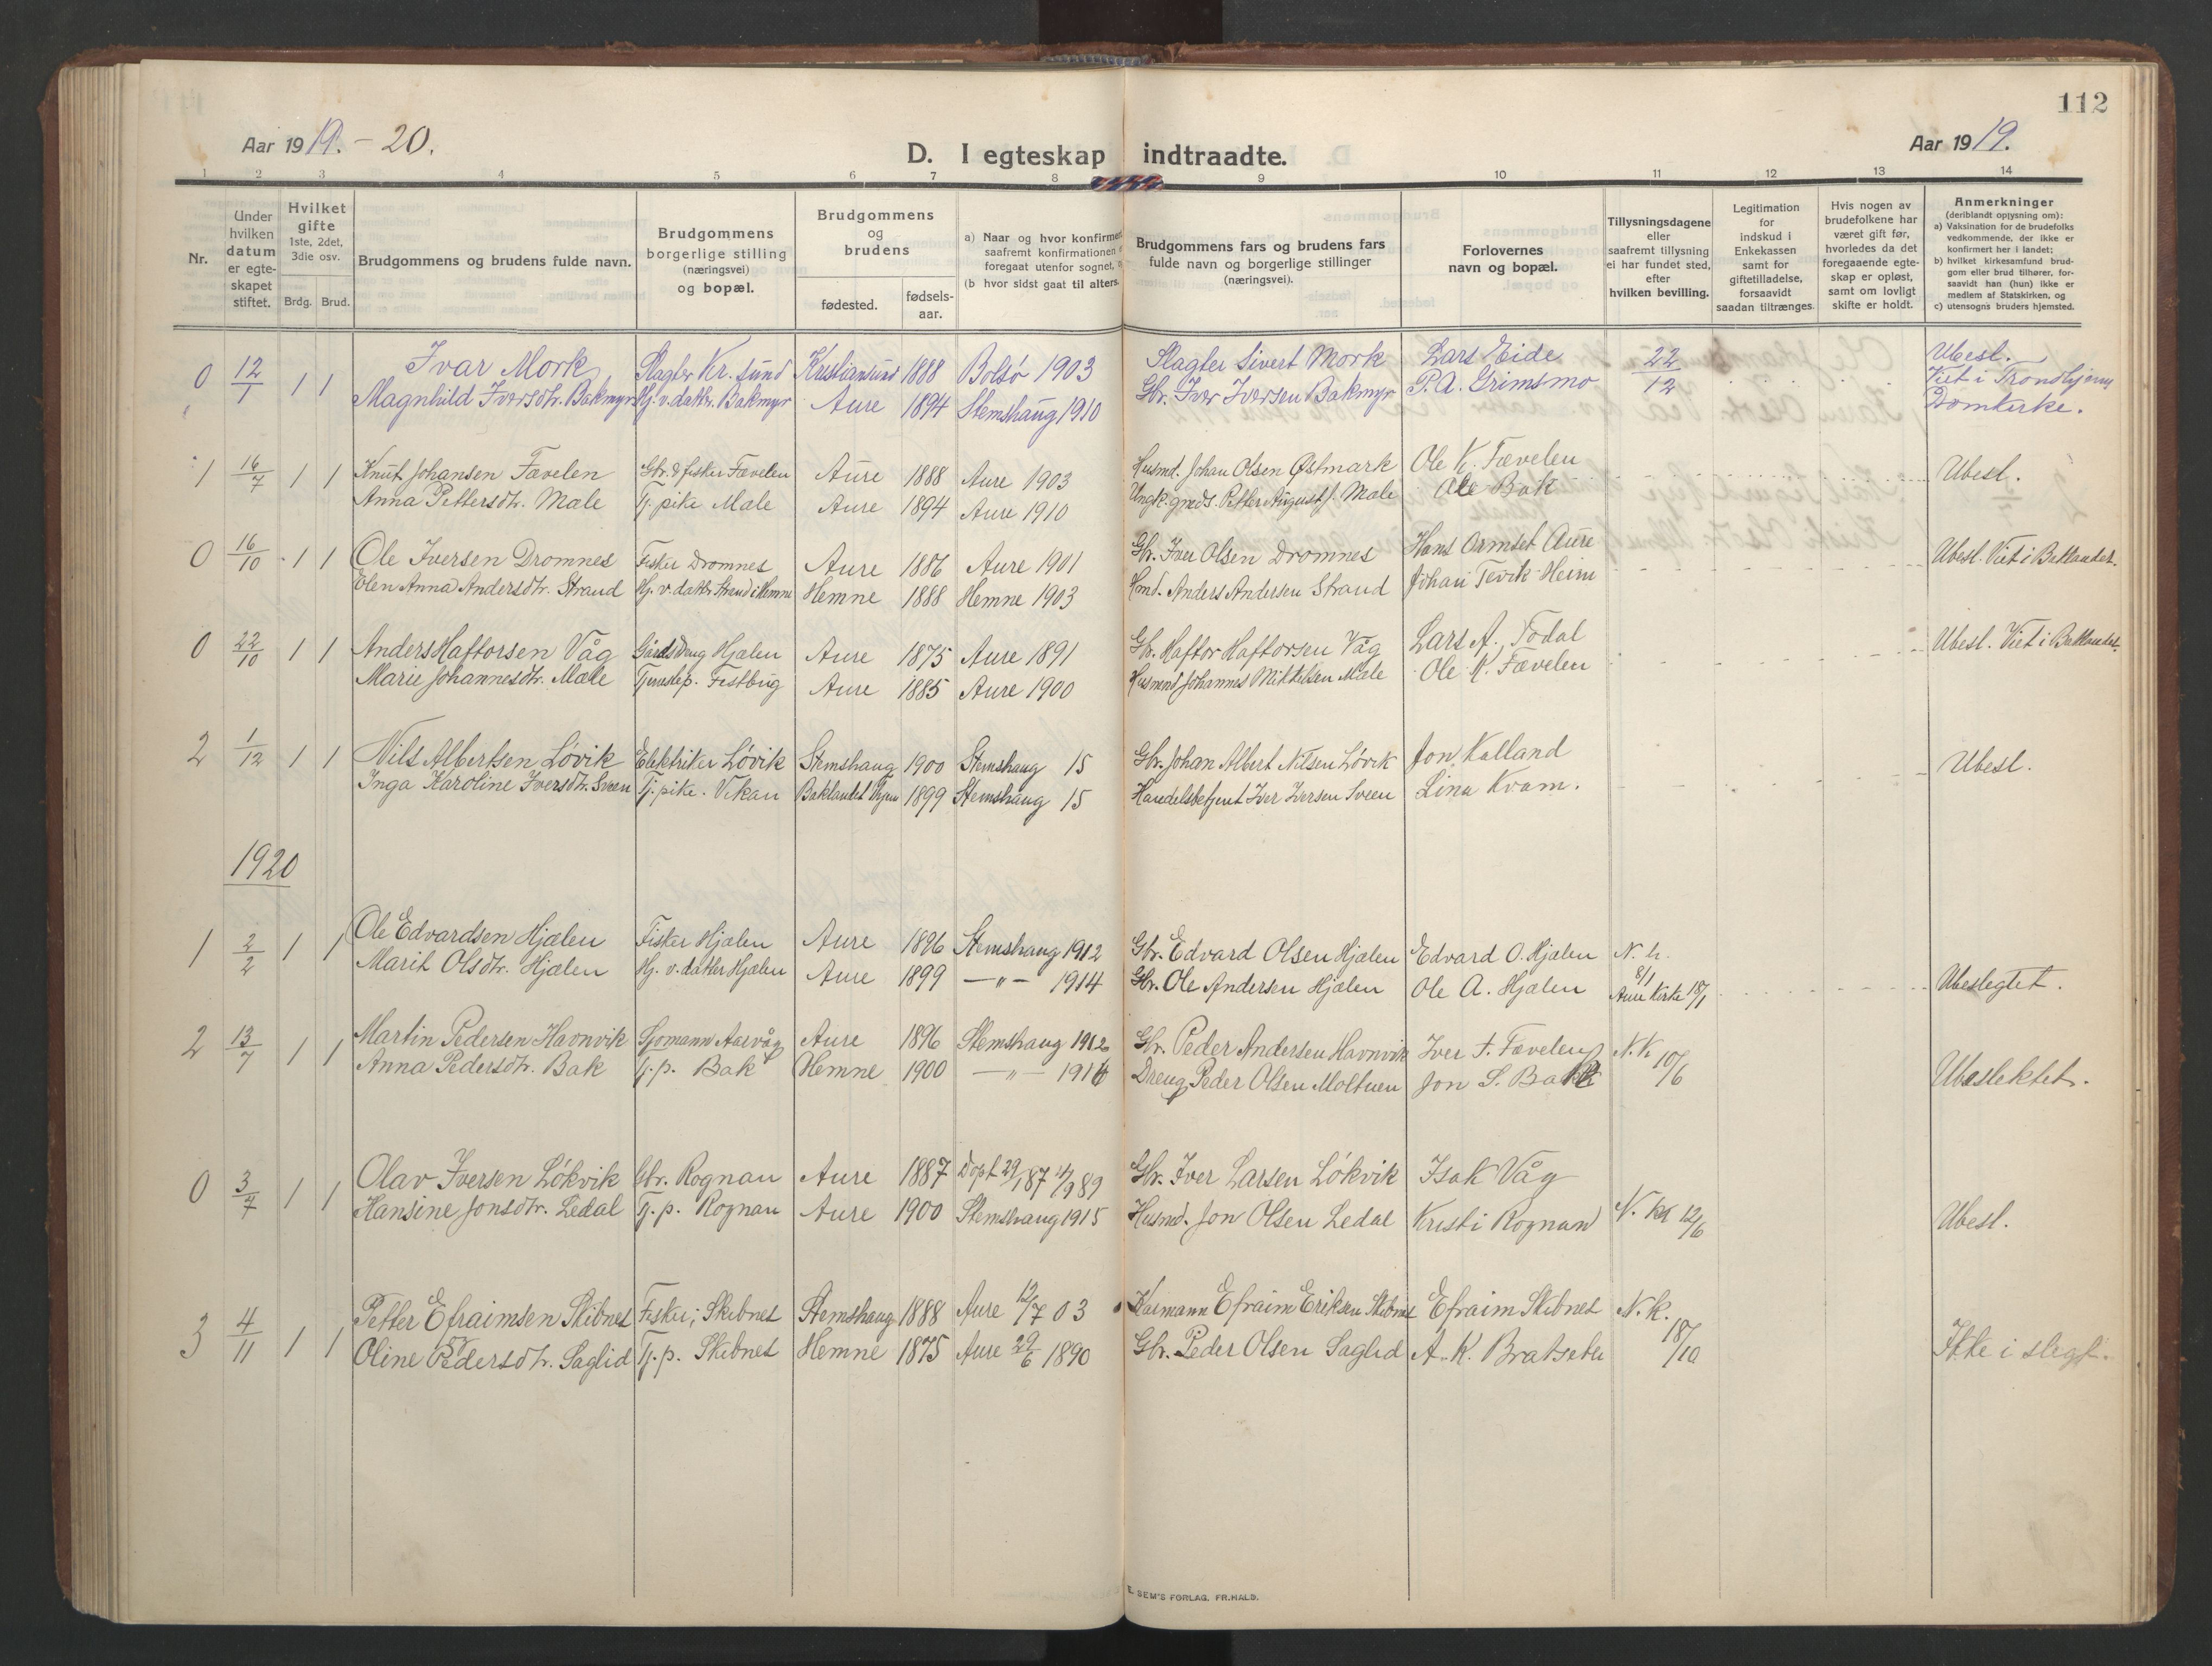 112
Aar 1919. - 20.
D. I egteskap indtraadte.
Aar 1919.
1 2 3 4 5 6 7 8 9 10 11 12 13 14
Nr.
Under hvilken datum er egteskapet stiftet.
Hvilket gifte 1ste, 2det, 3die osv.
Brdg. Brud.
Brudgommens og brudens fulde navn.
Brudgommens borgerlige stilling (næringsvei) og bopæl.
Brudgommens og brudens
fødested. fødsels-aar.
a) Naar og hvor konfirmer
saafremt konfirmationen
foregaat utenfor sognet,
(b hvor sidst gaat til alters.
Brudgommens fars og brudens fars fulde navn og borgerlige stillinger (næringsvei).
Forlovernes navn og bopæl.
Tillysningsdagene eller saafremt tillysning ei har fundet sted, efter hvilken bevilling.
Legitimation for indskud i Enkekassen samt for giftetilladelse, forsaavidt saadan tiltrænges.
Hvis nogen av brudefolkene har været gift før, hvorledes da det foregaaende egteskap er opløst, samt om lovligt skifte er holdt.
Anmerkninger
(deriblandt oplysning om):
a) Vaksination for de brudefolks vedkommende, der ikke er konfirmert her i landet;
b) hvilket kirkesamfund brudgom eller brud tilhører, forsaavidt han (hun) ikke er medlem af Statskirken, og
c) utensogns bruders hjemsted.
0 12/1 1 1 Ivar Mork Slagter Kr.sund Kristiansund 1888 Bolsø 1903 Slagter Sivert Mork Lars Eide 22/12 Ubesl.
Magnhild Iversdtr. Bakmyr Hj. v. datter. Bakmyr Aure 1894 Stemshaug 1910 Gbr. Iver Iversen Bakmyr P.A. Grimsmo Viet i Trondhjems Domkirke.
1 16/7 1 1 Knut Johansen Fævelen Gbr. & fisker Fævelen Aure 1888 Aure 1903 Husmd. Johan Olsen Østmark Ole K. Fævelen Ubesl.
Anna Pettersdtr. Mæle Tj. pike Mæle Aure 1894 Aure 1910 Petter August Mæle Ole Bak
0 16/10 1 1 Ole Iversen Dromnes Fisker Dromnes Aure 1886 Aure 1901 Gbr. Iver Olsen Dromnes Hans Ormset Aure Ubesl. Viet i Baklandet.
Elen Anna Andersdtr. Strand Hj. v. datter Strand i Hemne Hemne 1888 Hemne 1903 Hmd. Anders Andersen Strand Johan Tevik Heim
0 22/10 1 1 Anders Haftorsen Våg Gårdsdreng Hjælen Aure 1875 Aure 1891 Gbr. Haftor Haftorsen Våg Lars A. Todal Ubesl. Viet i Baklandet.
Marie Johannesdtr. Mæle Tjenestep. Festbug Aure 1885 Aure 1900 Husmend Johannes Mikkelsen Mæle Ole K. Fævelen
2 1/12 1 1 Nils Albertsen Løvik Elektriker Løvik Stemshaug 1900 Stemshaug 15 Gbr. Johan Albert Nilsen Løvik Jon Kalland Ubesl.
Inga Karoline Iversdtr. Sveen Tj. pike. Vikan Baklandet 1899 Stemshaug 15 Handelsbetjent Iver Iversen Sveen Lina Kvam.
1920
1 2/2 1 1 Ole Edvardsen Hjælen Fisker Hjælen Aure 1896 Stemshaug 1912 Gbr. Edvard Olsen Hjælen Edvard O. Hjælen N. k. 8/1
Marit Olsdtr. Hjælen Hj. v. datter Hjælen Aure 1899 — " — 1914 Gbr. Ole Andersen Hjælen Ole A. Hjælen Aure Kirke 18/1 Ubeslegtet.
2 13/7 1 1 Martin Pedersen Havnvik Sjømann Aarvåg Aure 1896 Stemshaug 1912 Gbr. Peder Andersen Havnvik Iver J. Fævelen N. k. 10/6
Anna Pedersdtr. Bak Tj. p. Bak Hemne 1900 — " — 1916 Dreng Peder Olsen Moltuen Jon S. Bakk Ubeslektet.
0 3/7 1 1 Olav Iversen Løkvik Gbr. Rognan Aure 1887 Døpt 29/1 87 Gbr. Iver Larsen Løkvik Isak Våg
Hansine Jonsdtr. Ledal Tj. p. Rognan Aure 1900 Stemshaug 1915 Husmd. Jon Olsen Ledal Kristi Rognan N. k. 12/6 Ubesl.
3 4/11 1 1 Petter Efraimsen Skibnes Fisker, Skibnes Stemshaug 1888 Aure 12/7 03 Kaarmann Efraim Eriksen Skibnes Efraim Skibnes N. k. 18/10
Oline Pedersdtr. Saglid Tj. p. Skibnes Hemne 1875 Aure 29/6 1890 Gbr. Peder Olsen Saglid A. K. Bratseter Ikke i slegt.
E. SEM'S FORLAG. FR.HALD.